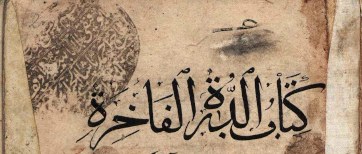 كتاب الدرة الفاخرة